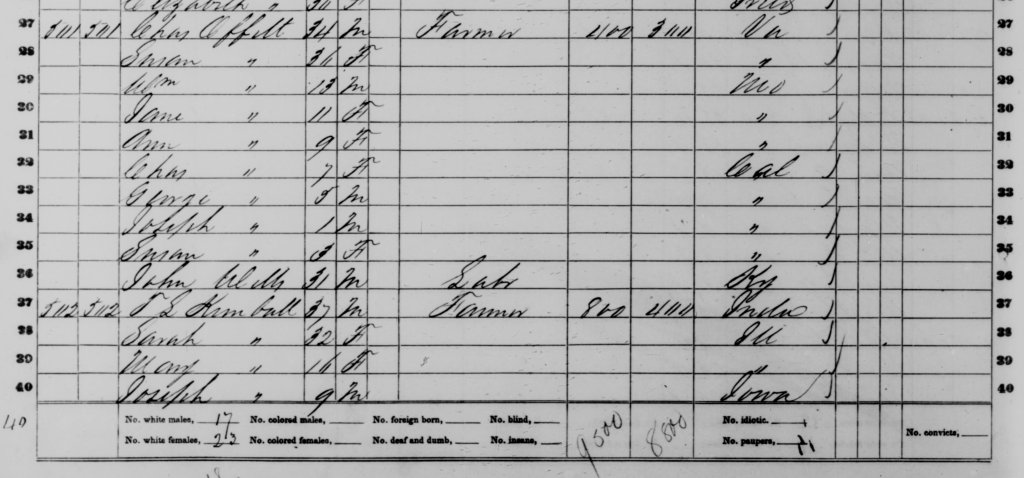 Elizabeth " 30 F
27 511 511 Chas Offett 34 M Farmer 400 300 Va 27
28 Susan " 36 F " 28
29 Wm " 13 M Mo 29
30 Jane " 11 F " 30
31 Ann " 9 F " 31
32 Chas " 7 F Cal 32
33 George " 5 M " 33
34 Joseph " 1 M " 34
35 Susan " 3 F " 35
36 John Wells 31 M Labr Ky 36
37 512 512 T L Kimball 37 M Farmer 800 400 Inda 37
38 Sarah " 32 F Ill 38
39 Mary " 16 F " " 39
40 Joseph " 9 M Iowa 40
40 No. white males, 17 No. colored males, No. foreign born, No. blind, 9500 8800 No. idiotic. No. convicts,
No. white females, 23 No. colored females, No. deaf and dumb, No. insane, No. paupers,